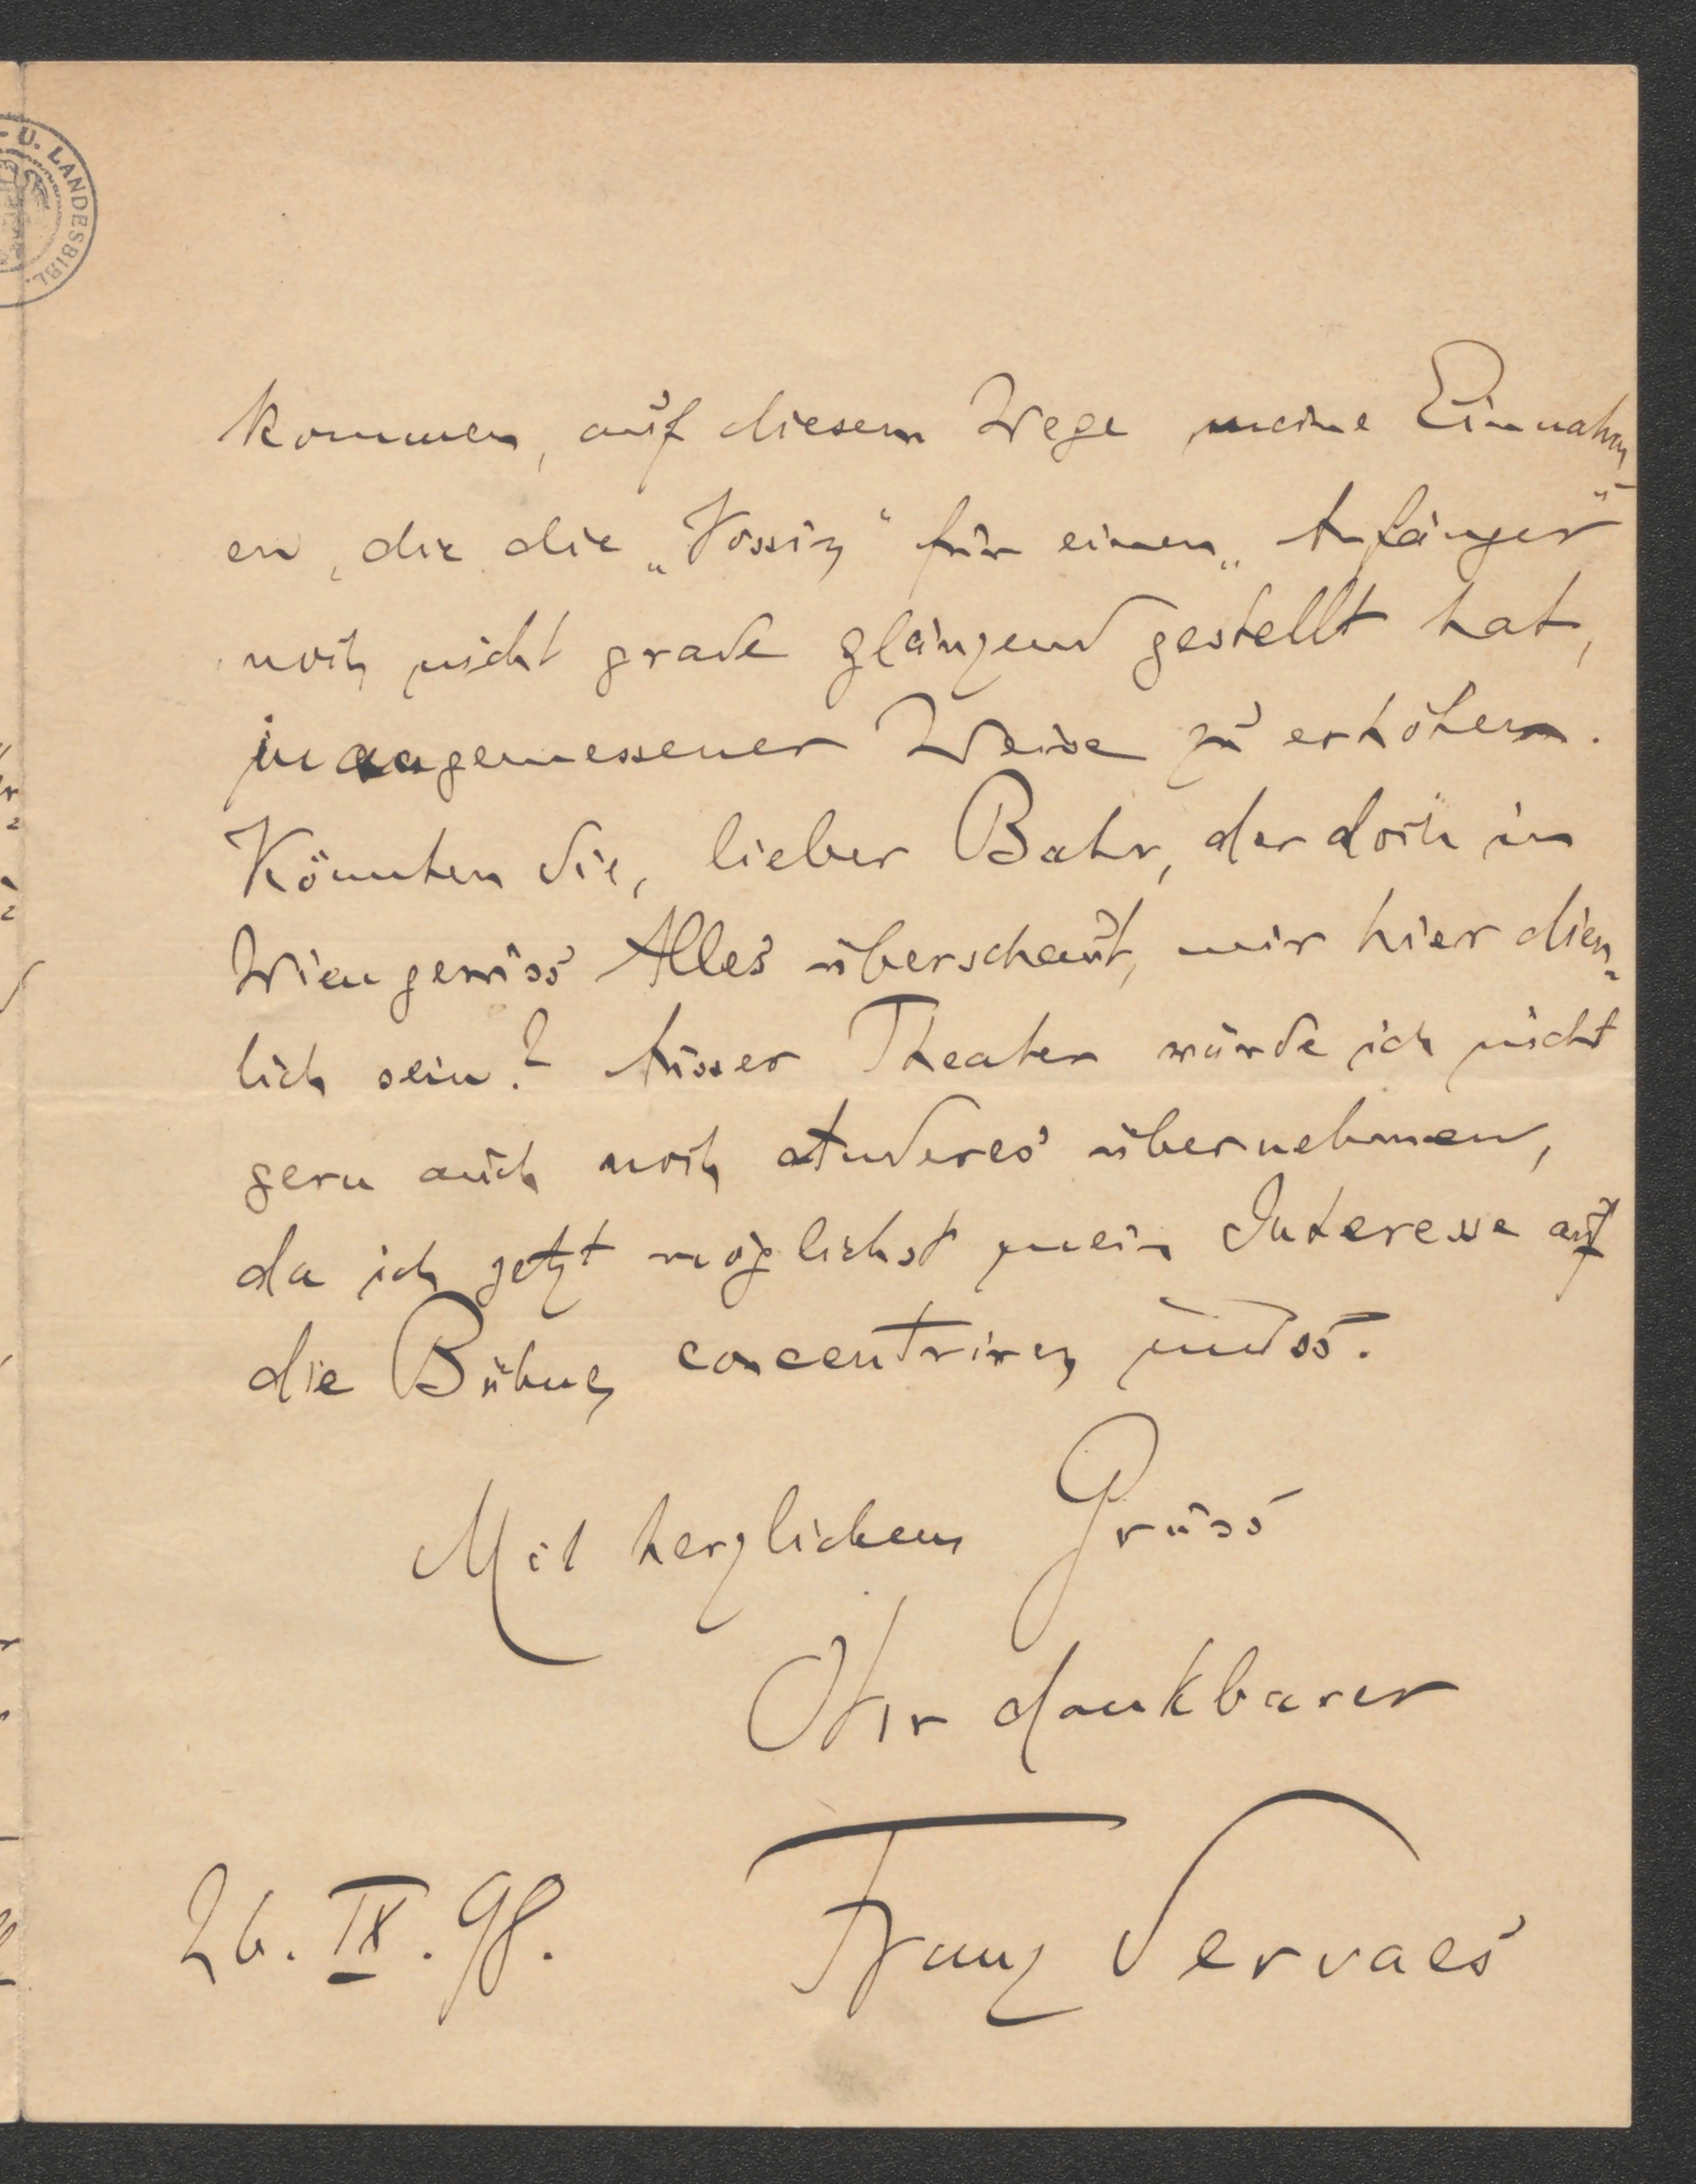 U. LANDESBIBL.
kommen, auf diesem Wege meine Einnahm
en, die die „Vossin“ für einen „Anfänger“
noch nicht grade glänzend gestellt hat,
in angemessener Weise zu erhöhen.
Könnten Sie, lieber Bahr, der doch in
Wien gewiss Alles überschaut, mir hier dien-
lich sein? Ausser Theater würde ich nicht
gern auch noch Anderes übernehmen,
da ich jetzt möglichst mein Interesse auf
die Bühne concentriren muss.
Mit herzlichem Gruss
Ihr dankbarer
Franz Servaes
26. IX. 98.